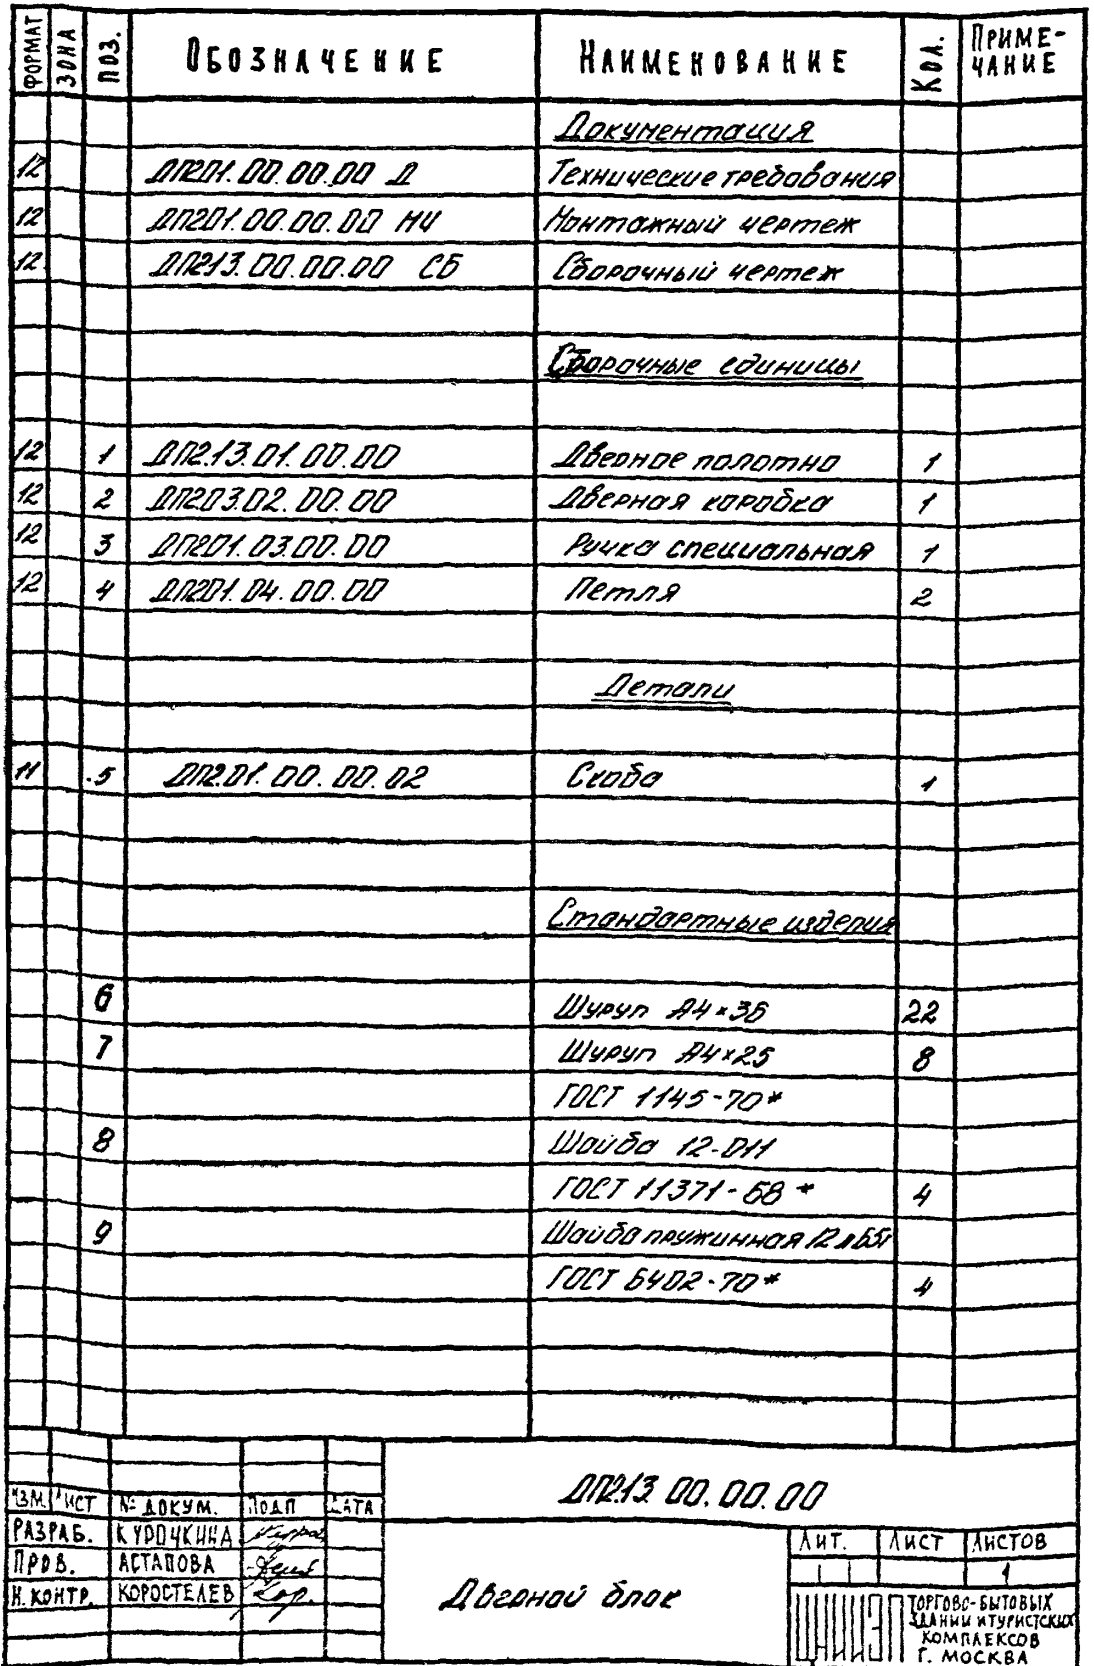 ФОРМАТ ЗОНА ПОЗ. ОБОЗНАЧЕНИЕ НАИМЕНОВАНИЕ КОЛ. ПРИМЕ-
ЧАНИЕ
Документация
12 ДП201.00.00.00 Д Технические требования
12 ДП201.00.00.00 МЧ Монтажный чертеж
12 ДП213.00.00.00 СБ Сборочный чертеж
Сборочные единицы
12 1 ДП2.13.01.00.00 Дверное полотно 1
12 2 ДП203.02.00.00 Дверная коробка 1
12 3 ДП201.03.00.00 Ручка специальная 1
12 4 ДП201.04.00.00 Петля 2
Детали
11 5 ДП2.01.00.00.02 Скоба 1
Стандартные изделия
6 Шуруп А4×36 22
7 Шуруп А4×25 8
ГОСТ 1145-70*
8 Шайба 12-011
ГОСТ 11371-68* 4
9 Шайба пружинная 12 л65г
ГОСТ 6402-70* 4
ДП213 00.00.00
ИЗМ. ЛИСТ № ДОКУМ. ПОДП ДАТА
РАЗРАБ. КУРОЧКИНА
ПРОВ. АСТАПОВА
Н. КОНТР. КОРОСТЕЛЕВ
Дверной блок
ЛИТ. ЛИСТ ЛИСТОВ
1
ЦНИИЭП
ТОРГОВО-БЫТОВЫХ
ЗДАНИЙ И ТУРИСТСКИХ
КОМПЛЕКСОВ
Г. МОСКВА